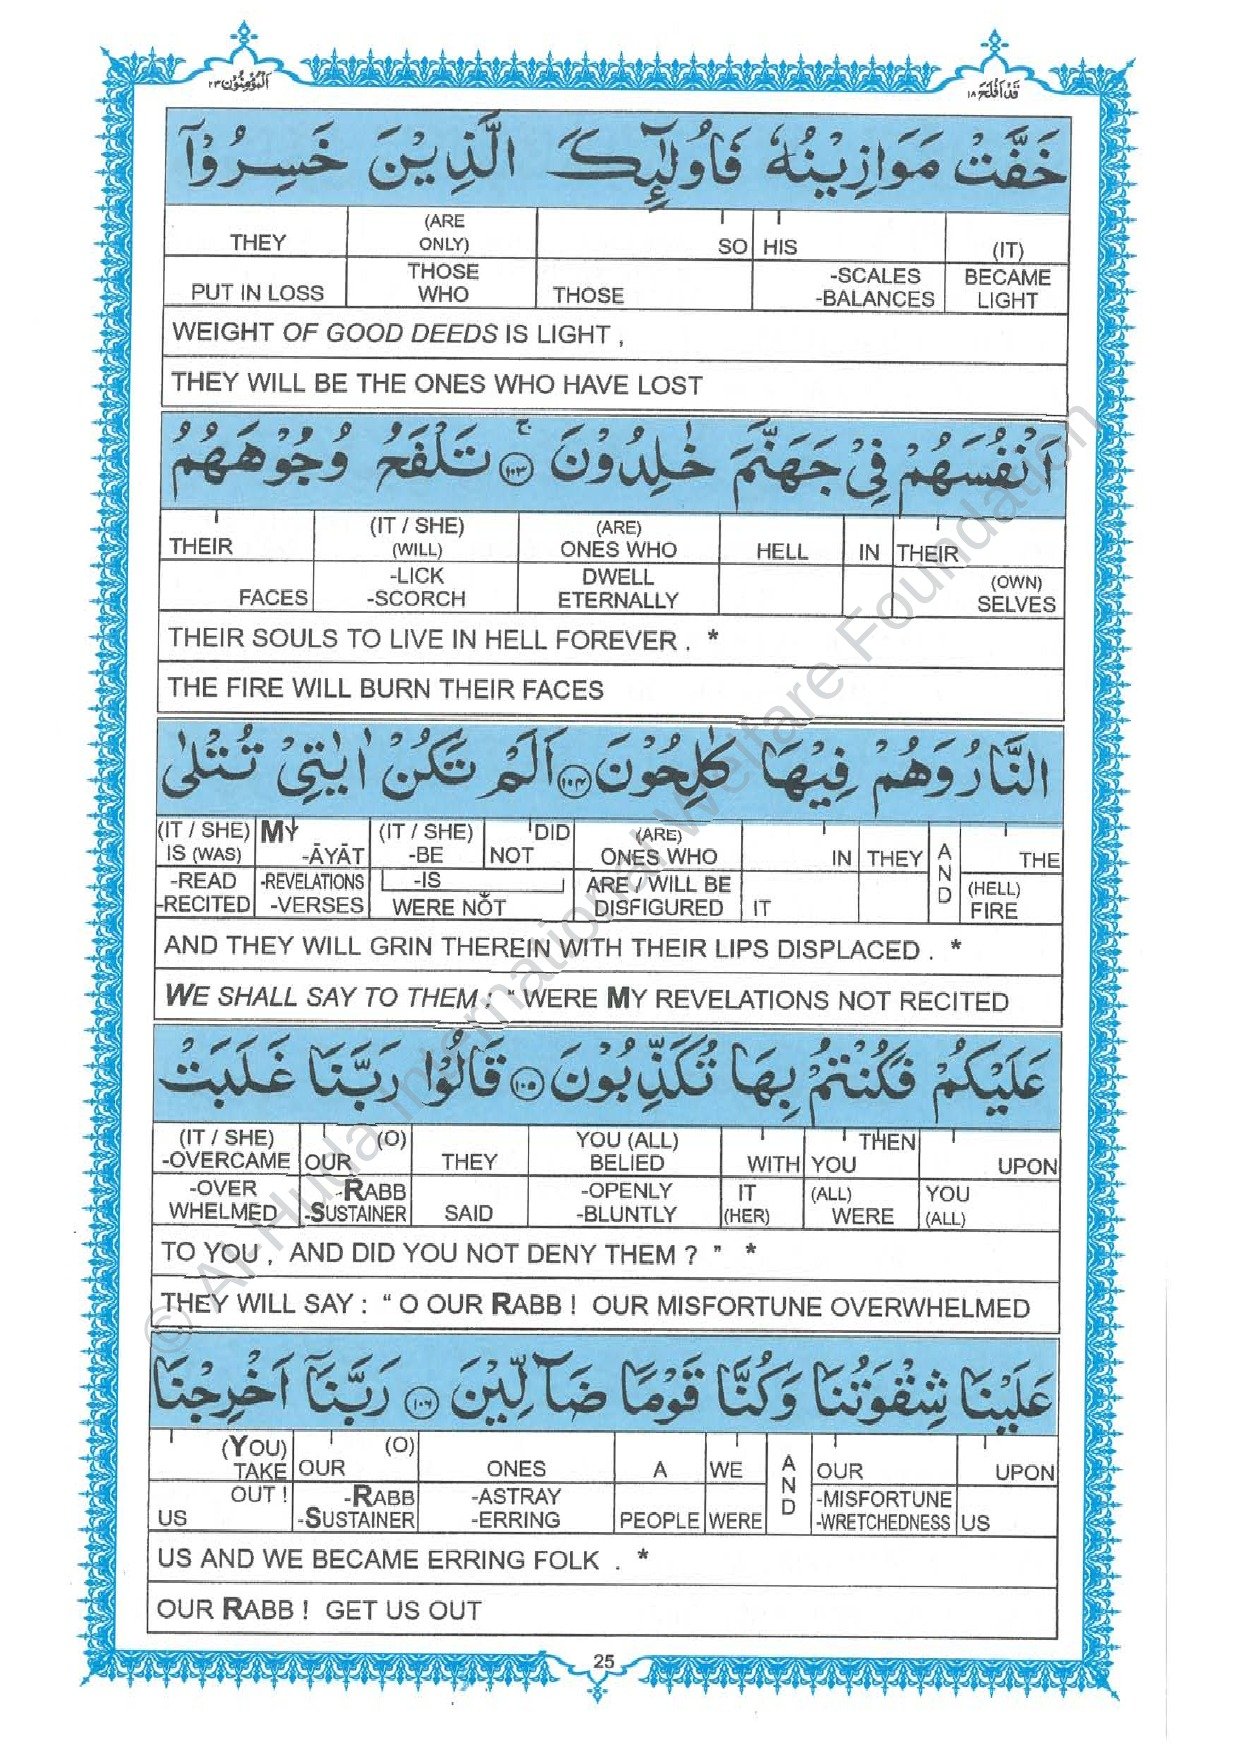 المؤمنون ٢٣
قد افلح ١٨
خَفَّتْ مَوَازِيْنُهٗ فَاُولٰٓئِكَ الَّذِيْنَ خَسِرُوْٓا
THEY (ARE ONLY) SO HIS (IT)
PUT IN LOSS THOSE WHO THOSE -SCALES -BALANCES BECAME LIGHT
WEIGHT OF GOOD DEEDS IS LIGHT ,
THEY WILL BE THE ONES WHO HAVE LOST
اَنْفُسَهُمْ فِيْ جَهَنَّمَ خٰلِدُوْنَ ۚ ١٠٣ تَلْفَحُ وُجُوْهَهُمُ
THEIR (IT / SHE) (WILL) (ARE) ONES WHO HELL IN THEIR
FACES -LICK -SCORCH DWELL ETERNALLY (OWN) SELVES
THEIR SOULS TO LIVE IN HELL FOREVER . *
THE FIRE WILL BURN THEIR FACES
النَّارُ وَهُمْ فِيْهَا كٰلِحُوْنَ ١٠٤ اَلَمْ تَكُنْ اٰيٰتِيْ تُتْلٰى
(IT / SHE) IS (WAS) MY -ĀYĀT (IT / SHE) -BE NOT DID (ARE) ONES WHO IN THEY AND THE
-READ -RECITED -REVELATIONS -VERSES -IS WERE NOT ARE / WILL BE DISFIGURED IT (HELL) FIRE
AND THEY WILL GRIN THEREIN WITH THEIR LIPS DISPLACED . *
WE SHALL SAY TO THEM : “ WERE MY REVELATIONS NOT RECITED
عَلَيْكُمْ فَكُنْتُمْ بِهَا تُكَذِّبُوْنَ ١٠٥ قَالُوْا رَبَّنَا غَلَبَتْ
(IT / SHE) -OVERCAME OUR (O) THEY YOU (ALL) BELIED WITH YOU THEN UPON
-OVER WHELMED -RABB -SUSTAINER SAID -OPENLY -BLUNTLY IT (HER) (ALL) WERE YOU (ALL)
TO YOU , AND DID YOU NOT DENY THEM ? ” *
THEY WILL SAY : “ O OUR RABB ! OUR MISFORTUNE OVERWHELMED
عَلَيْنَا شِقْوَتُنَا وَكُنَّا قَوْمًا ضَآلِّيْنَ ١٠٦ رَبَّنَآ اَخْرِجْنَا
(YOU) TAKE OUR (O) ONES A WE AND OUR UPON
US OUT ! -RABB -SUSTAINER -ASTRAY -ERRING PEOPLE WERE -MISFORTUNE -WRETCHEDNESS US
US AND WE BECAME ERRING FOLK . *
OUR RABB ! GET US OUT
25
© Al-Huda International Welfare Foundation